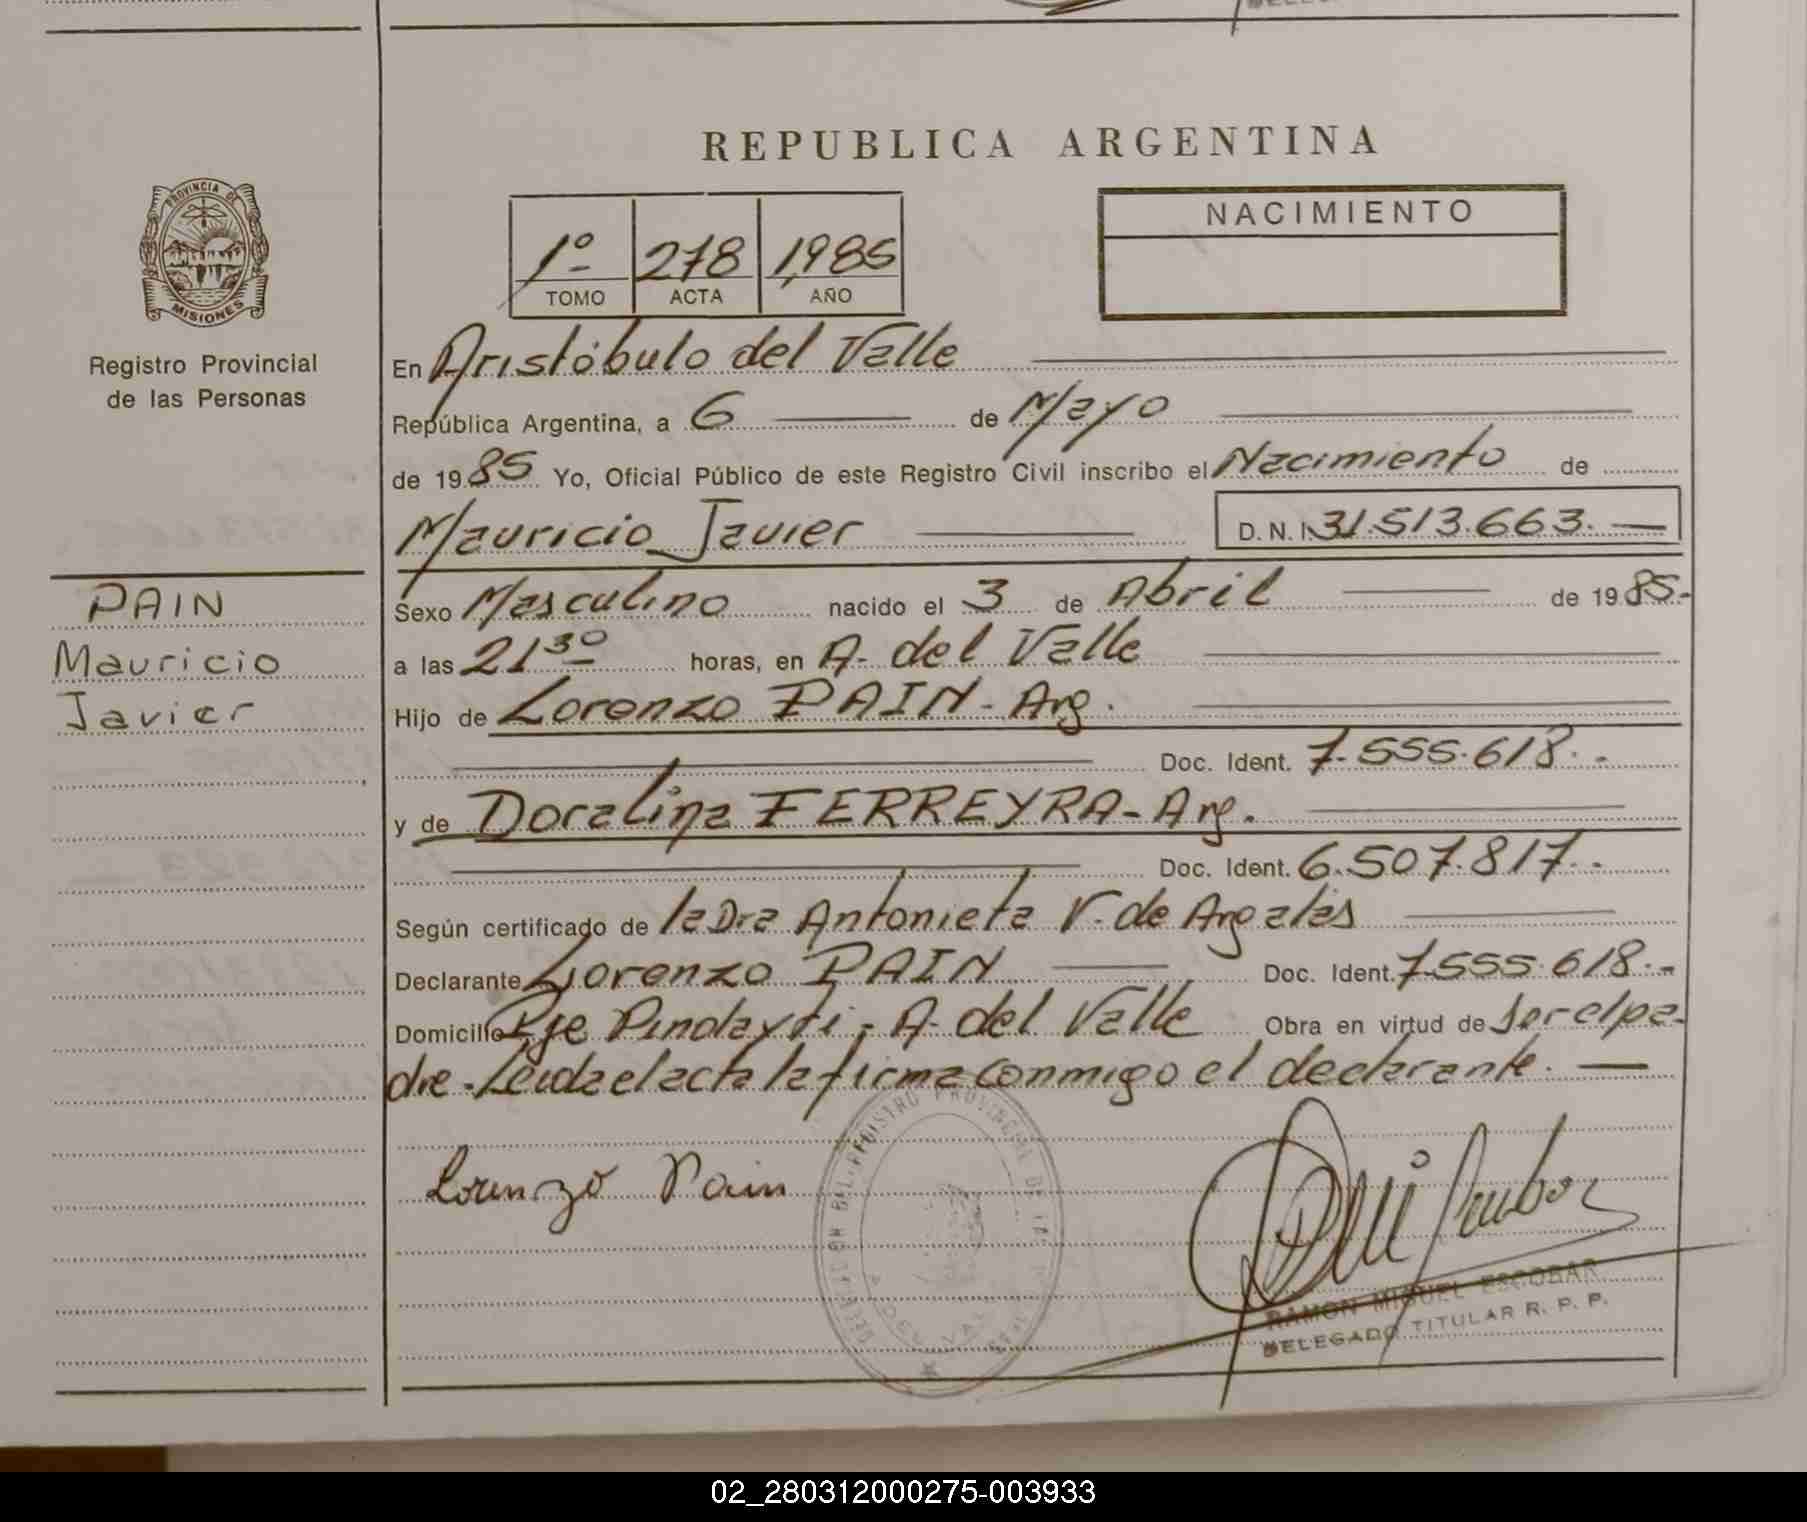 REPUBLICA ARGENTINA
PROVINCIA DE
MISIONES
Registro Provincial
de las Personas
1º 278 1985
TOMO ACTA AÑO
NACIMIENTO
En Aristóbulo del Valle
República Argentina, a 6 de Mayo
de 1985 Yo, Oficial Público de este Registro Civil inscribo el Nacimiento de
Mauricio Javier D. N. I. 31.513.663.
PAIN
Mauricio
Javier
Sexo Masculino nacido el 3 de Abril de 1985.-
a las 21 30 horas, en A. del Valle
Hijo de Lorenzo PAIN - Arg.
Doc. Ident. 7.555.618.-
y de Doralina FERREYRA - Arg.
Doc. Ident. 6.507.817.-
Según certificado de la Dra Antonieta V. de
Declarante Lorenzo PAIN Doc. Ident. 7.555.618.-
Domicilio Pje Pindayti - A. del Valle Obra en virtud de ser el pa-
dre. Leida el acta la firma conmigo el declarante.
Lorenzo Pain
REGISTRO PROVINCIAL DE
RAMON MIGUEL ESCOBAR
DELEGADO TITULAR R. P. P.
02_280312000275-003933